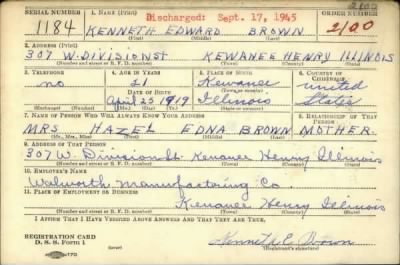 2100
SERIAL NUMBER 1. NAME (Print) ORDER NUMBER
Discharged: Sept. 17, 1945
1184 KENNETH EDWARD BROWN 2100
(First) (Middle) (Last)
2. ADDRESS (Print)
307 W. DIVISION ST KEWANEE HENRY ILLINOIS
(Number and street or R. F. D. number) (Town) (County) (State)
3. TELEPHONE 4. AGE IN YEARS 5. PLACE OF BIRTH 6. COUNTRY OF CITIZENSHIP
no 21 Kewanee United
DATE OF BIRTH (Town or county)
April 25 1919 Illinois States
(Exchange) (Number) (Mo.) (Day) (Yr.) (State or country)
7. NAME OF PERSON WHO WILL ALWAYS KNOW YOUR ADDRESS 8. RELATIONSHIP OF THAT PERSON
MRS HAZEL EDNA BROWN MOTHER
(Mr., Mrs., Miss) (First) (Middle) (Last)
9. ADDRESS OF THAT PERSON
307 W. Division St. Kewanee Henry Illinois
(Number and street or R. F. D. number) (Town) (County) (State)
10. EMPLOYER'S NAME
Walworth Manufactoring Co.
11. PLACE OF EMPLOYMENT OR BUSINESS
Kewanee Henry Illinois
(Number and street or R. F. D. number) (Town) (County) (State)
I AFFIRM THAT I HAVE VERIFIED ABOVE ANSWERS AND THAT THEY ARE TRUE.
REGISTRATION CARD
D. S. S. Form 1 Kenneth E. Brown
(Registrant's signature)